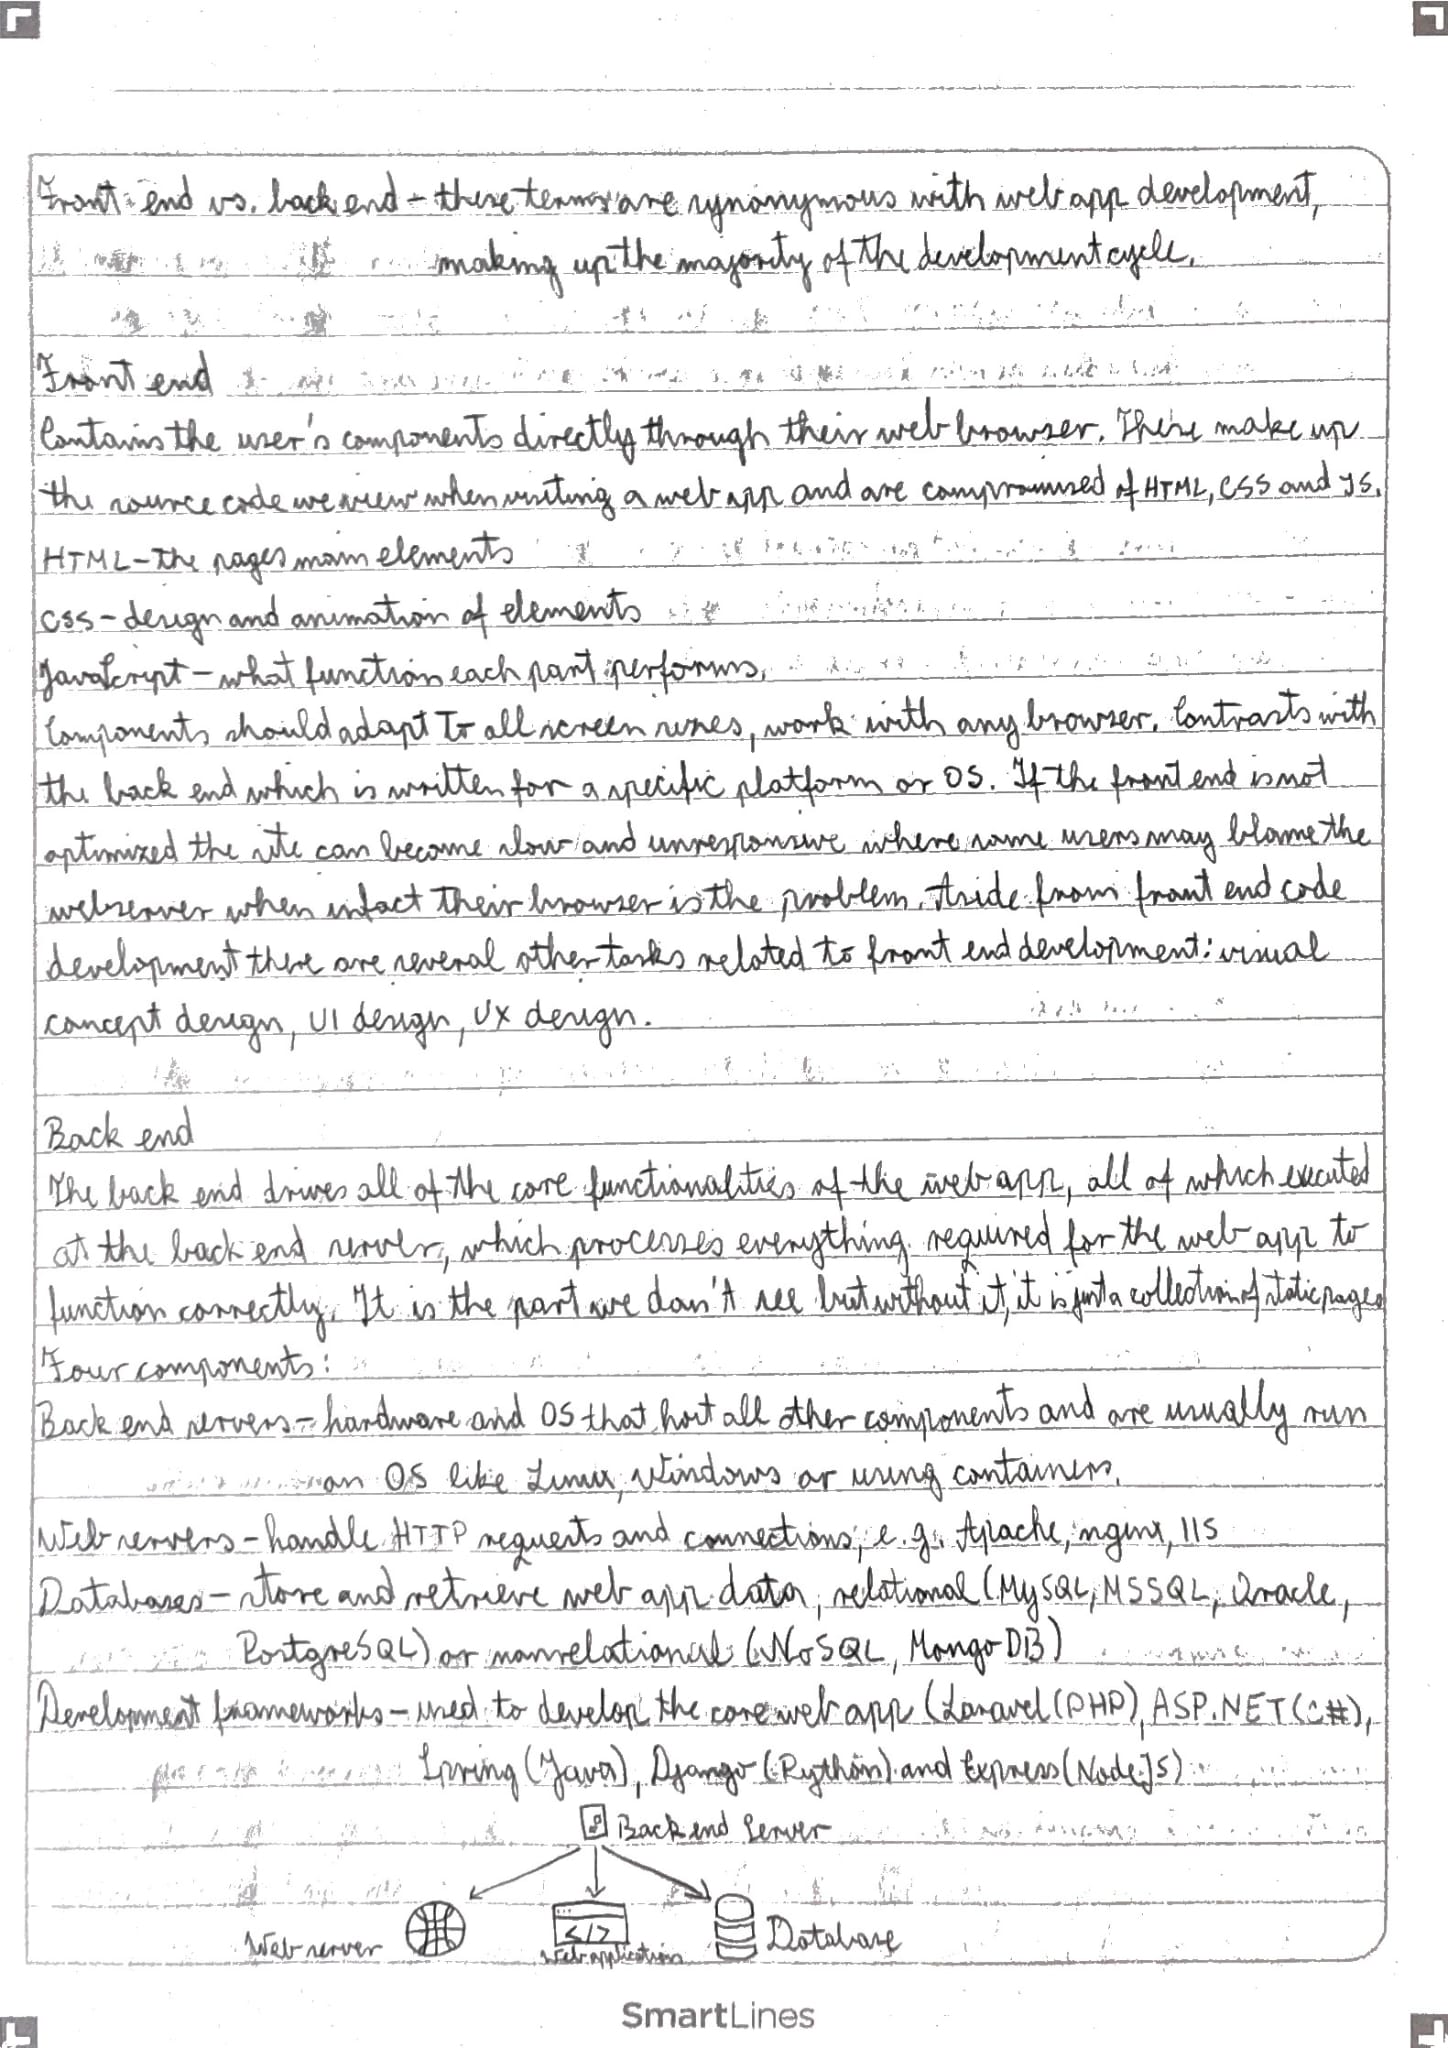 Front end vs. back end - these terms are synonymous with web app development,
making up the majority of the development cycle.
Front end
Contains the user's components directly through their web browser. These make up
the source code we view when visiting a web app and are compromised of HTML, CSS and JS.
HTML - the pages main elements
CSS - design and animation of elements
JavaScript - what function each part performs.
Components should adapt to all screen sizes, work with any browser. Contrasts with
the back end which is written for a specific platform or OS. If the front end is not
optimized the site can become slow and unresponsive where some users may blame the
webserver when infact their browser is the problem. Aside from front end code
development there are several other tasks related to front end development: visual
concept design, UI design, UX design.
Back end
The back end drives all of the core functionalities of the web app, all of which executed
at the back end server, which processes everything required for the web app to
function correctly. It is the part we don't see but without it, it is just a collection of static pages
Four components:
Back end servers - hardware and OS that host all other components and are usually run
on OS like Linux, Windows or using containers.
Web servers - handle HTTP requests and connections, e.g. Apache, nginx, IIS
Databases - store and retrieve web app data, relational (MySQL, MSSQL, Oracle,
PostgreSQL) or nonrelational (NoSQL, MongoDB)
Development frameworks - used to develop the core web app (Laravel (PHP), ASP.NET (C#),
Spring (Java), Django (Python) and Express (NodeJS)
Back end Server
</>
Web server Web application Database
SmartLines